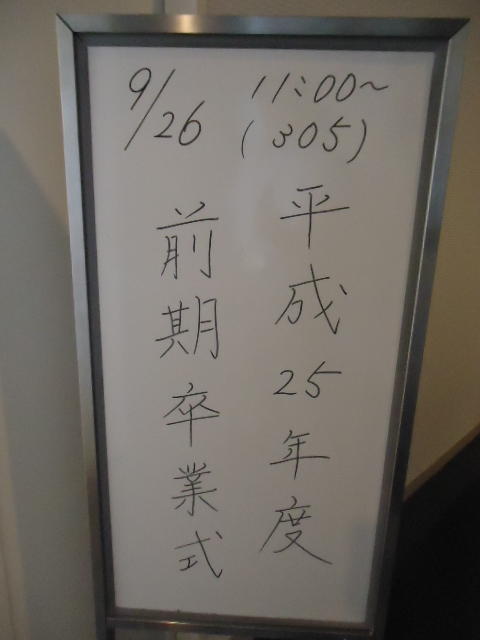 9/26
11:00~
(305)
平成25年度
前期卒業式